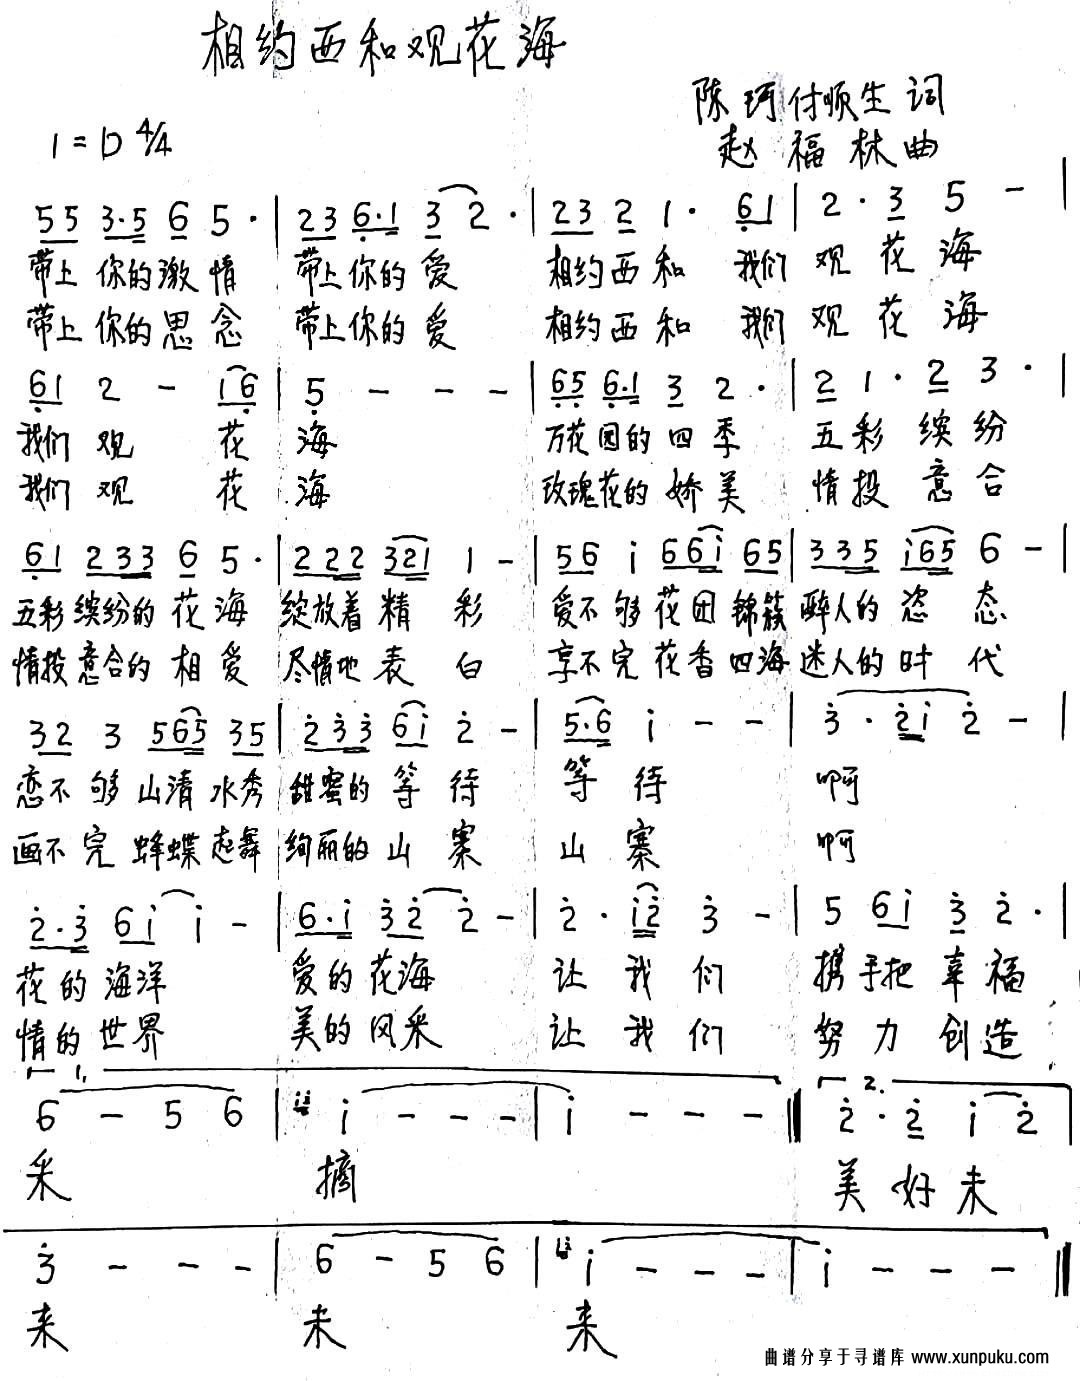 相约西和观花海
陈珂付顺生词
1=D 4/4
赵福林曲
55 3·5 6 5· | 23 6·1 3 2· | 23 2 1· 61 | 2·3 5 - |
带上你的激情 带上你的爱 相约西和 我们观花海
带上你的思念 带上你的爱 相约西和 我们观花海
61 2 - 16 | 5 - - - | 65 6·1 3 2· | 2 1· 2 3· |
我们观花海 万花园的四季 五彩缤纷
我们观花海 玫瑰花的娇美 情投意合
61 233 6 5· | 222 321 1 - | 56 i 66i 65 | 335 i65 6 - |
五彩缤纷的花海 绽放着精彩 爱不够花团锦簇 醉人的恣态
情投意合的相爱 尽情地表白 享不完花香四海 迷人的时代
32 3 565 35 | 233 6i 2 - | 5·6 i - - | 3·2i 2 - |
恋不够山清水秀 甜蜜的等待 等待 啊
画不完蜂蝶起舞 绚丽的山寨 山寨 啊
2·3 6i i - | 6·i 32 2 - | 2·i2 3 - | 5 6i 3 2· |
花的海洋 爱的花海 让我们 携手把幸福
情的世界 美的风采 让我们 努力创造
1.
2.
6 - 5 6 | i - - - | i - - - | 2·2 i 2
采 摘 美好未
3 - - - | 6 - 5 6 | i - - - | i - - - |
来 未 来
曲谱分享于寻谱库 www.xunpuku.com